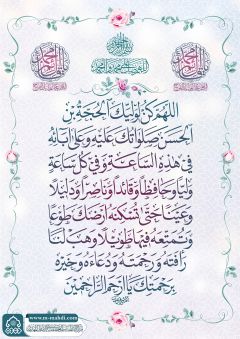 اللهم كن لوليك الحجة بن
الحسن صلواتك عليه وعلى آبائه
في هذه الساعة وفي كل ساعة
وليا وحافظا وقائدا وناصرا ودليلا
وعينا حتى تسكنه أرضك طوعا
وتمتعه فيها طويلا وهب لنا
رأفته ورحمته ودعاءه وخيره
برحمتك يا أرحم الراحمين
www.m-mahdi.com